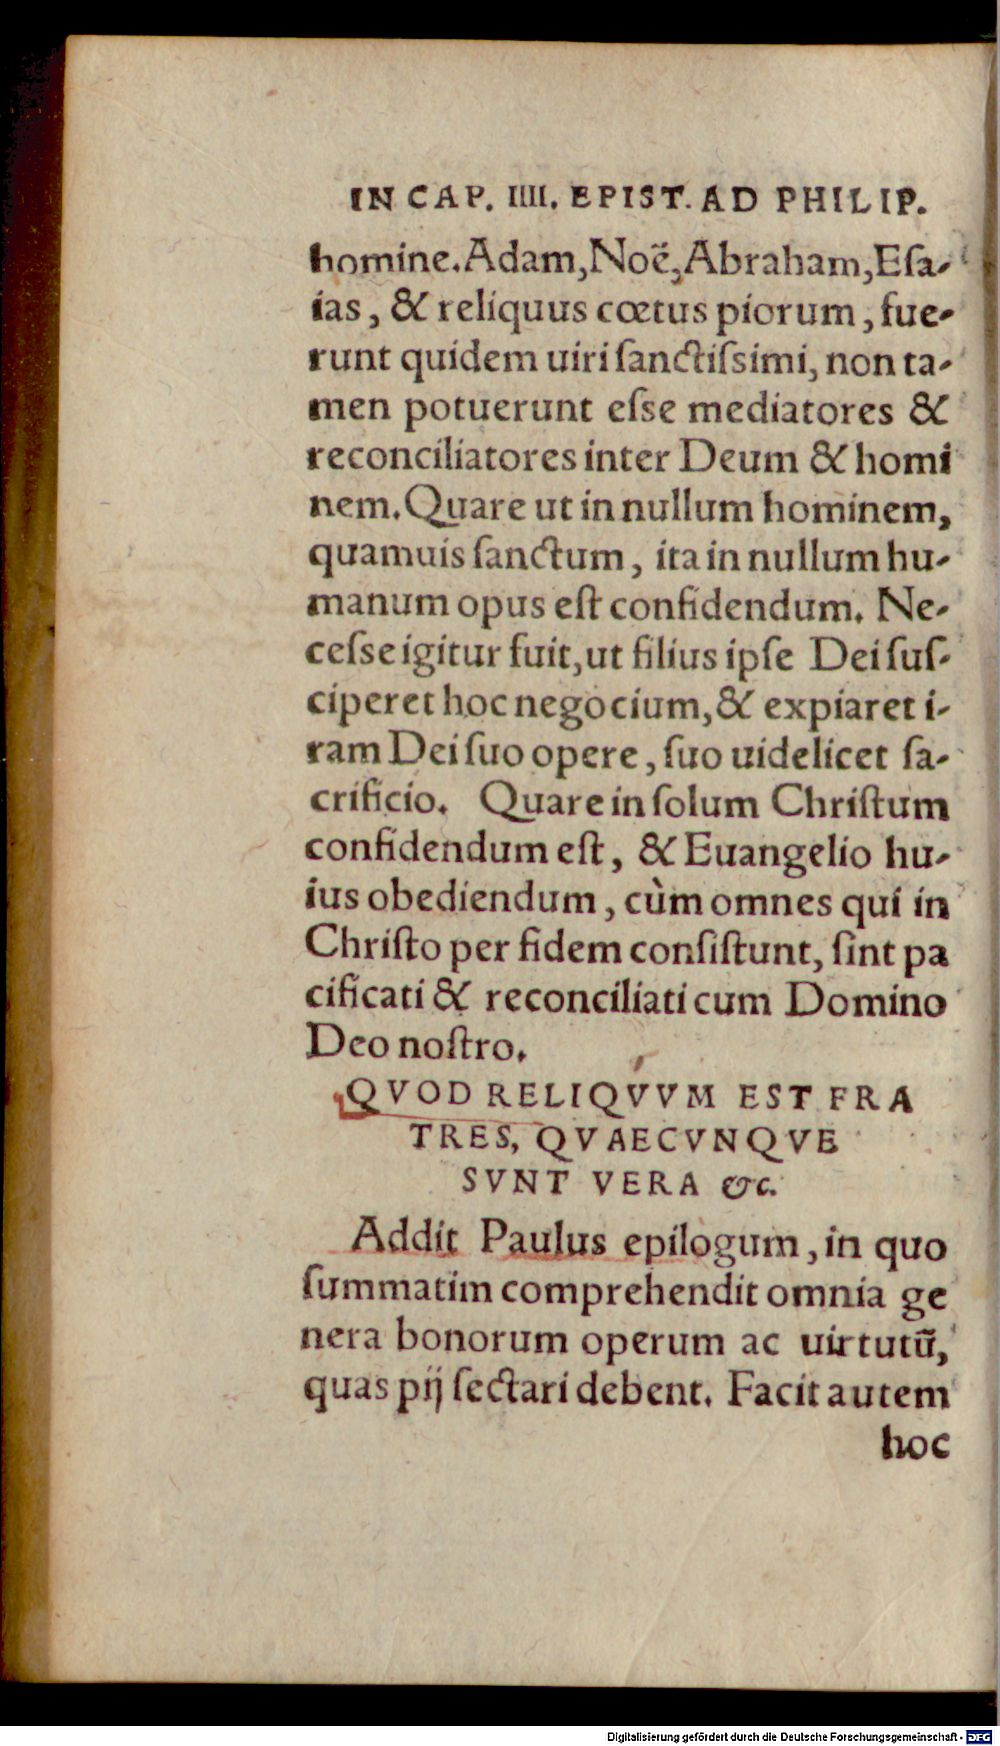 IN CAP. IIII. EPIST. AD PHILIP.
homine. Adam, Noë, Abraham, Eſa-
ias, & reliquus cœtus piorum, fue-
runt quidem uiri ſanctiſsimi, non ta-
men potuerunt eſse mediatores &
reconciliatores inter Deum & homi
nem. Quare ut in nullum hominem,
quamuis ſanctum, ita in nullum hu-
manum opus eſt confidendum. Ne-
ceſse igitur fuit, ut filius ipſe Dei ſuſ-
ciperet hoc negocium, & expiaret i-
ram Dei ſuo opere, ſuo uidelicet ſa-
crificio. Quare in ſolum Chriſtum
confidendum eſt, & Euangelio hu-
ius obediendum, cùm omnes qui in
Chriſto per fidem conſiſtunt, ſint pa
cificati & reconciliati cum Domino
Deo noſtro.
QVOD RELIQVVM EST FRA
TRES, QVAECVNQVE
SVNT VERA &c.
Addit Paulus epilogum, in quo
ſummatim comprehendit omnia ge
nera bonorum operum ac uirtutū,
quas pij ſectari debent. Facit autem
hoc
Digitalisierung gefördert durch die Deutsche Forschungsgemeinschaft - DFG